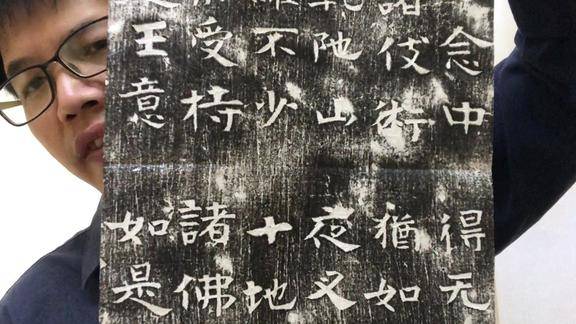 念中得无
諸伎術猶如
陁山夜叉
不少十地
受持諸佛
王意如是